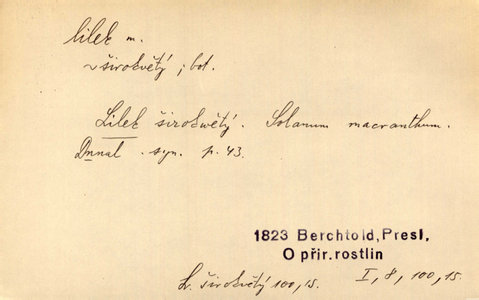 lilek m.
~ širokvětý ; bot.
Lilek širokwětý. Solanum macranthum.
Dunal. syn. p. 43.
1823 Berchtold, Presl,
O přir. rostlin
I, 8, 100, 15.
L. širokvětý 100, 15.